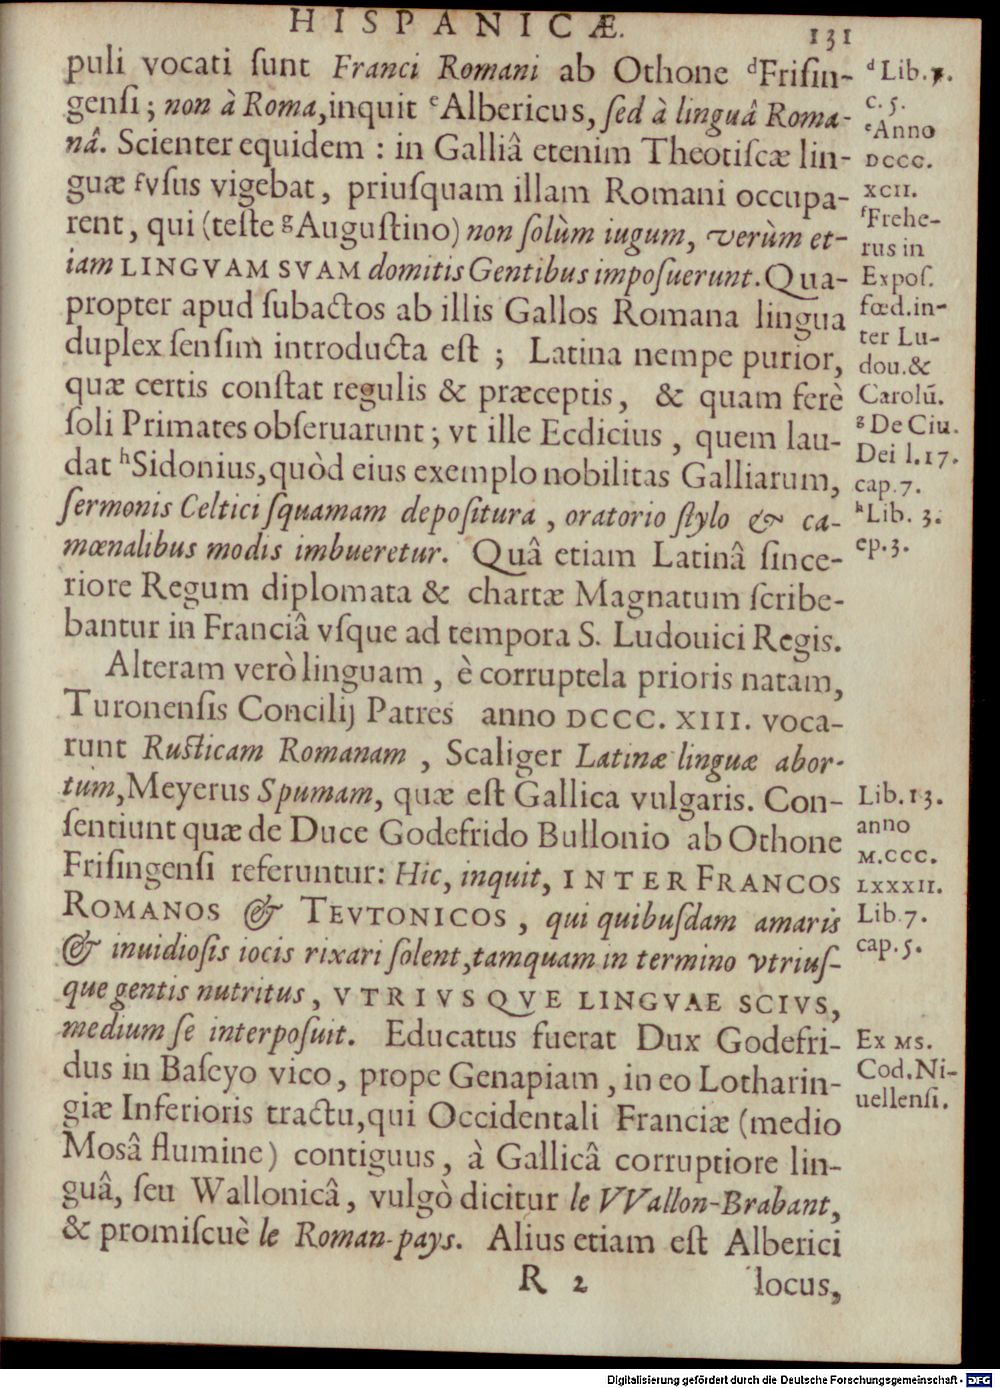 HISPANICÆ.
131
puli vocati ſunt Franci Romani ab Othone ᵈFriſin-
genſi; non à Roma, inquit ᵉAlbericus, ſed à linguâ Roma-
nâ. Scienter equidem : in Galliâ etenim Theotiſcæ lin-
guæ ᶠvſus vigebat, priuſquam illam Romani occupa-
rent, qui (teſte ᵍAuguſtino) non ſolùm iugum, verùm et-
iam LINGVAM SVAM domitis Gentibus impoſuerunt. Qua-
propter apud ſubactos ab illis Gallos Romana lingua
duplex ſenſim introducta eſt ; Latina nempe purior,
quæ certis conſtat regulis & præceptis, & quam ferè
ſoli Primates obſeruarunt; vt ille Ecdicius, quem lau-
dat ʰSidonius, quòd eius exemplo nobilitas Galliarum,
ſermonis Celtici ſquamam depoſitura, oratorio ſtylo & ca-
mœnalibus modis imbueretur. Quâ etiam Latinâ ſince-
riore Regum diplomata & chartæ Magnatum ſcribe-
bantur in Franciâ vſque ad tempora S. Ludouici Regis.
Alteram verò linguam, è corruptela prioris natam,
Turonenſis Concilij Patres anno DCCC. XIII. voca-
runt Ruſticam Romanam, Scaliger Latinæ linguæ abor-
tum, Meyerus Spumam, quæ eſt Gallica vulgaris. Con-
ſentiunt quæ de Duce Godefrido Bullonio ab Othone
Friſingenſi referuntur: Hic, inquit, INTER FRANCOS
ROMANOS & TEVTONICOS, qui quibuſdam amaris
& inuidioſis iocis rixari ſolent, tamquam in termino vtriuſ-
que gentis nutritus, VTRIVSQVE LINGVAE SCIVS,
medium ſe interpoſuit. Educatus fuerat Dux Godefri-
dus in Baſeyo vico, prope Genapiam, in eo Lotharin-
giæ Inferioris tractu, qui Occidentali Franciæ (medio
Mosâ flumine) contiguus, à Gallicâ corruptiore lin-
guâ, ſeu Wallonicâ, vulgò dicitur le VVallon-Brabant,
& promiſcuè le Roman-pays. Alius etiam eſt Alberici
R 2
locus,
ᵈ Lib. 7.
c. 5.
ᵉAnno
DCCC.
XCII.
ᶠFrehe-
rus in
Expoſ.
fœd. in-
ter Lu-
dou. &
Carolū.
ᵍ De Ciu.
Dei l. 17.
cap. 7.
ʰLib. 3.
ep. 3.
Lib. 13.
anno
M.CCC.
LXXXII.
Lib. 7.
cap. 5.
Ex MS.
Cod. Ni-
uellenſi.
Digitalisierung gefördert durch die Deutsche Forschungsgemeinschaft - DFG